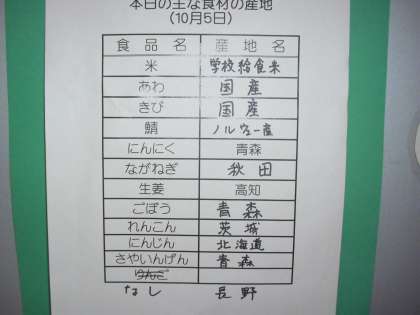 本日の主な食材の産地
(10月5日)
食品名 産地名
米 学校給食米
あわ 国産
きび 国産
鯖 ノルウェー産
にんにく 青森
ながねぎ 秋田
生姜 高知
ごぼう 青森
れんこん 茨城
にんじん 北海道
さやいんげん 青森
りんご
なし 長野